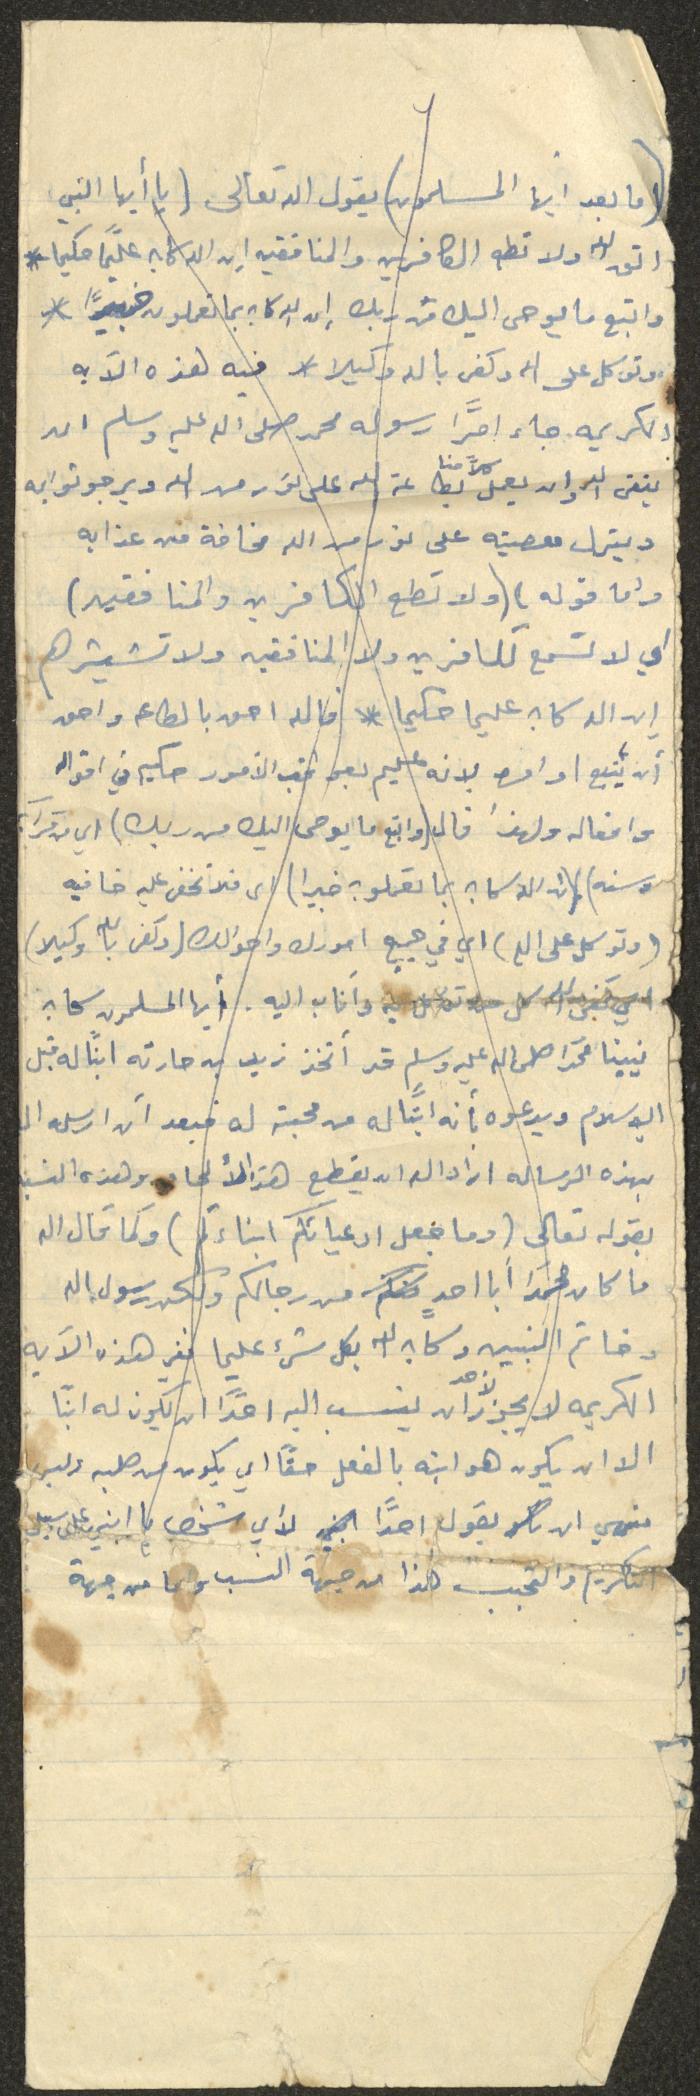 (اما بعد ايها المسلمون) يقول الله تعالى (يا أيها النبي
اتق الله ولا تطع الكافرين والمنافقين إن الله كان عليمًا حكيما *
واتبع ما يوحى اليك من ربك إن الله كان بما تعملون خبيرًا *
وتوكل على الله وكفى بالله وكيلا * فيه هذه الآيه
الكريمه جاء امرًا رسوله محمد صلى الله عليه وسلم ان
يتقي الله وان يعمل كلاً منا بطاعة الله على نور من الله ويرجو ثوابه
ويترك معصيته على نور من الله مخافة من عذابه
واما قوله) (ولا تطع الكافرين والمنافقين)
اي لا تسمع للكافرين ولا المنافقين ولا تستشيرهم
إن الله كان عليما حكيما * فالله احق بالطاعه واحق
أن يتبع اوامره لانه عليم بعواقب الأمور حكيم في اقواله
وافعاله ولهذا قال (واتبع ما يوحى اليك من ربك) اي من قرآن
وسنه) (إن الله كان بما تعملون خبيرا) اي فلا تخفى عليه خافيه
(وتوكل على الله) اي في جميع امورك واحوالك (وكفى بالله وكيلا)
اي كفى الله كل من توكل عليه وأناب اليه. أيها المسلمون كان
نبينا محمدًا صلى الله عليه وسلم قد أتخذ زيد بن حارثه ابنًا له قبل
الإسلام ويدعوه بأنه ابنًا له من محبته له فبعد أن ارسله الله
بهذه الرساله اراد الله ان يقطع هذا الألحاق وهذه النسبه
بقوله تعالى (وما جعل ادعيائكم ابناءكم) وكما قال الله
ما كان محمدًا أبا احدٍ من رجالكم ولكن رسول الله
وخاتم النبيين وكان الله بكل شيء عليما ففي هذه الآيه
الكريمه لا يجوز لأحد ان ينسب اليه احدًا ان يكون له ابنًا
الا ان يكون هو ابنه بالفعل حقًا اي يكون من صلبه وليس
منهي ان يقول احدًا لأي شخص يا ابني على سبيل
التكريم والتحبب هذا من جهة النسب واما من جهة